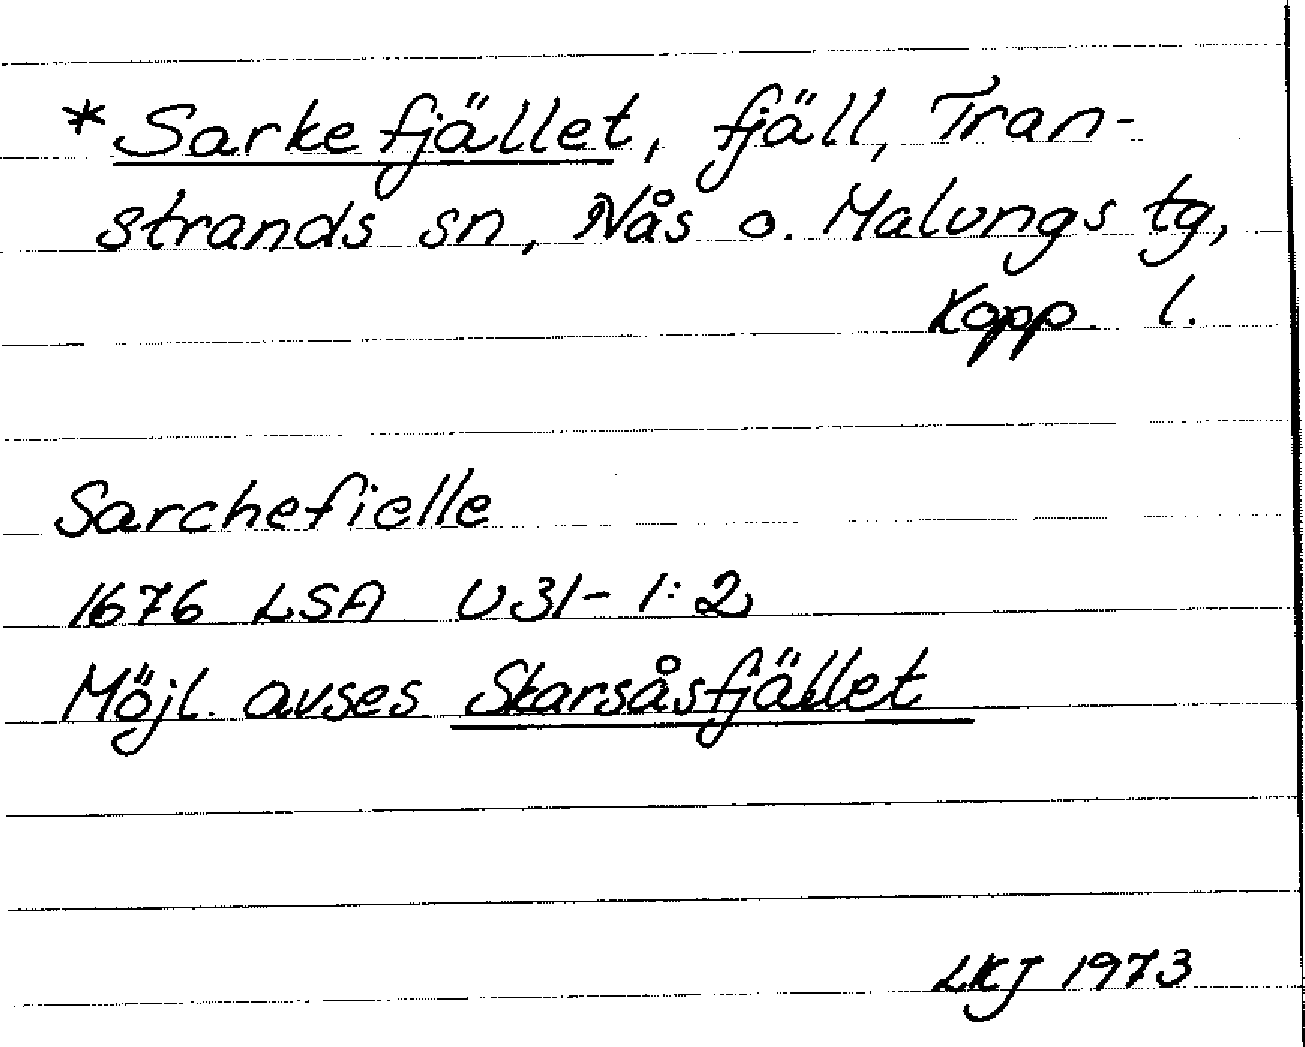 * Sarkefjället, fjäll, Tran-
strands sn, Nås o. Malungs tg,
Kopp. l.
Sarchefielle
1676 LSA U31-1:2
Möjl. avses Skarsåsfjället
LKJ 1973